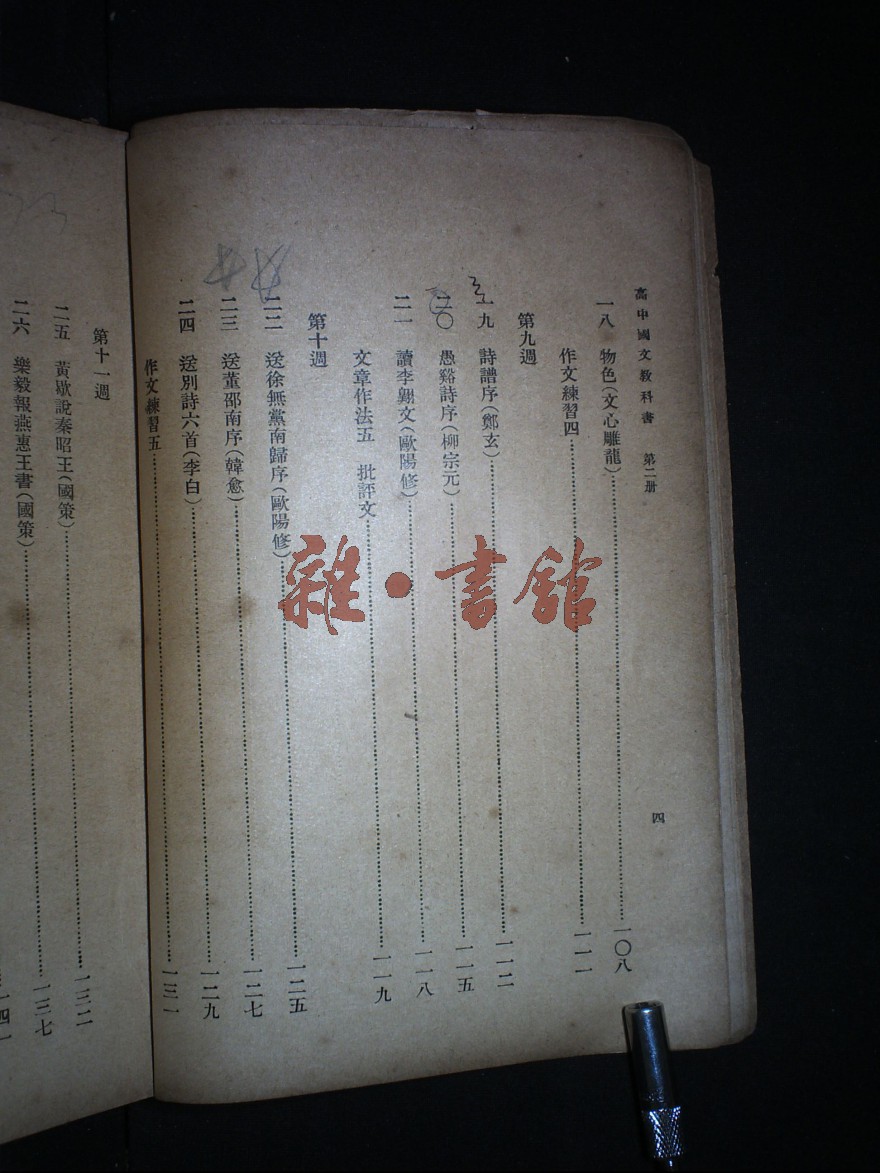 高中國文教科書　第二册
四
一八　物色(文心雕龍)……一〇八
作文練習四……一一一
第九週
一九　詩譜序(鄭玄)……一一二
二〇　愚谿詩序(柳宗元)……一一五
二一　讀李翺文(歐陽修)……一一八
文章作法五　批評文……一一九
第十週
二二　送徐無黨南歸序(歐陽修)……一二五
二三　送董邵南序(韓愈)……一二七
二四　送別詩六首(李白)……一二九
作文練習五……一三一
第十一週
二五　黃歇說秦昭王(國策)……一三二
二六　樂毅報燕惠王書(國策)……一三七
一四一
雜·書館